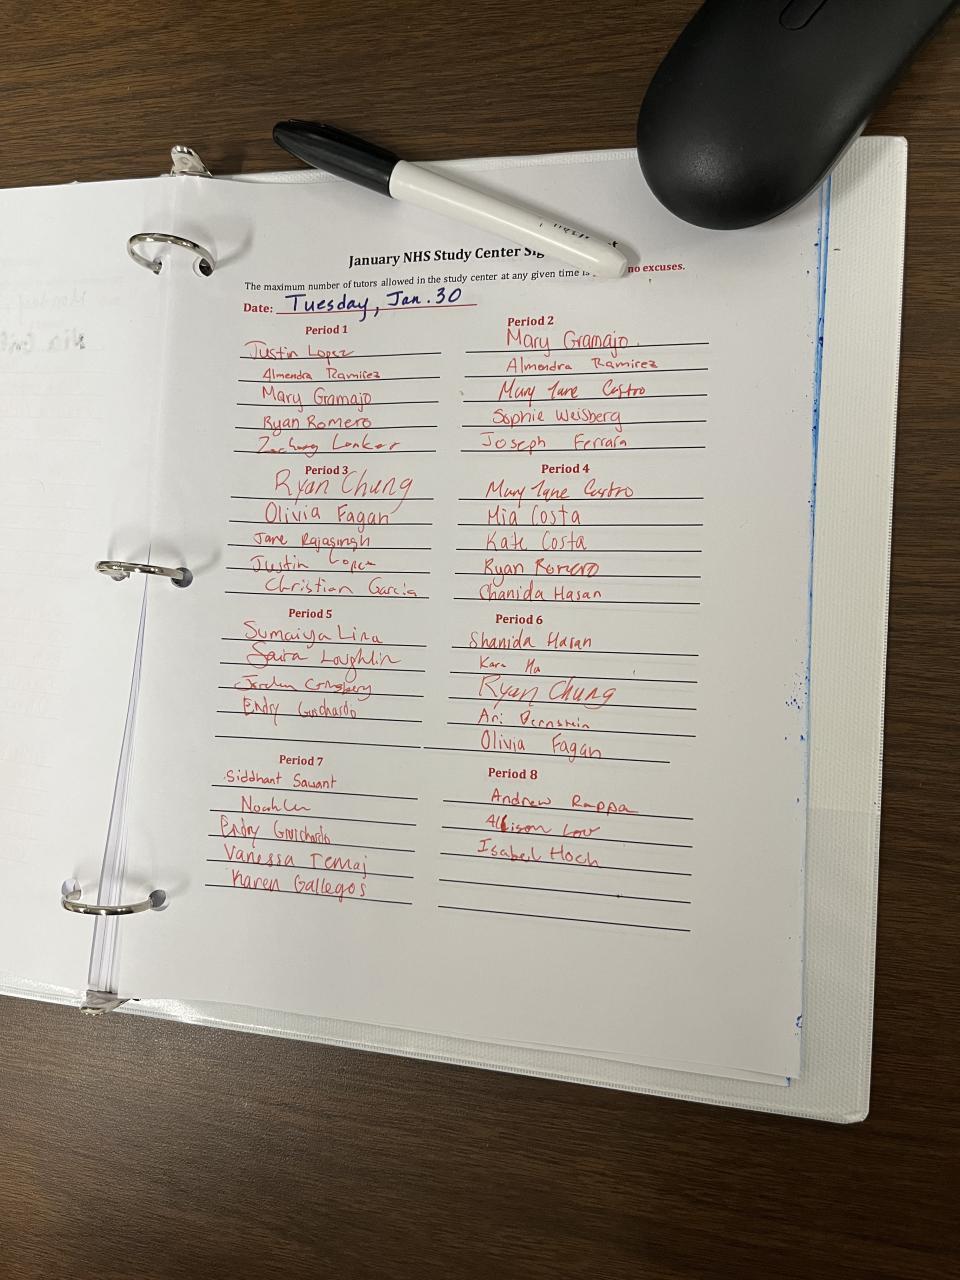 January NHS Study Center Sig
The maximum number of tutors allowed in the study center at any given time is no excuses.
Date: Tuesday, Jan. 30
Period 1
Justin Lopez
Almendra Ramirez
Mary Gramajo
Ryan Romero
Zachary Lonker
Period 2
Mary Gramajo
Almendra Ramirez
Mary Jane Castro
Sophie Weisberg
Joseph Ferrara
Period 3
Ryan Chung
Olivia Fagan
Jane Rajasingh
Justin Lopez
Christian Garcia
Period 4
Mary Jane Castro
Mia Costa
Kate Costa
Ryan Romero
Shanida Hasan
Period 5
Sumaiya Lira
Saira Loughlin
Jordan Ginsberg
Endry Guichardo
Period 6
Shanida Hasan
Kara Ma
Ryan Chung
Ari Bernstein
Olivia Fagan
Period 7
Siddhant Sawant
Noah
Endry Guichardo
Vanessa Temaj
Karen Gallegos
Period 8
Andrew Rappa
Allison
Isabel Hoch